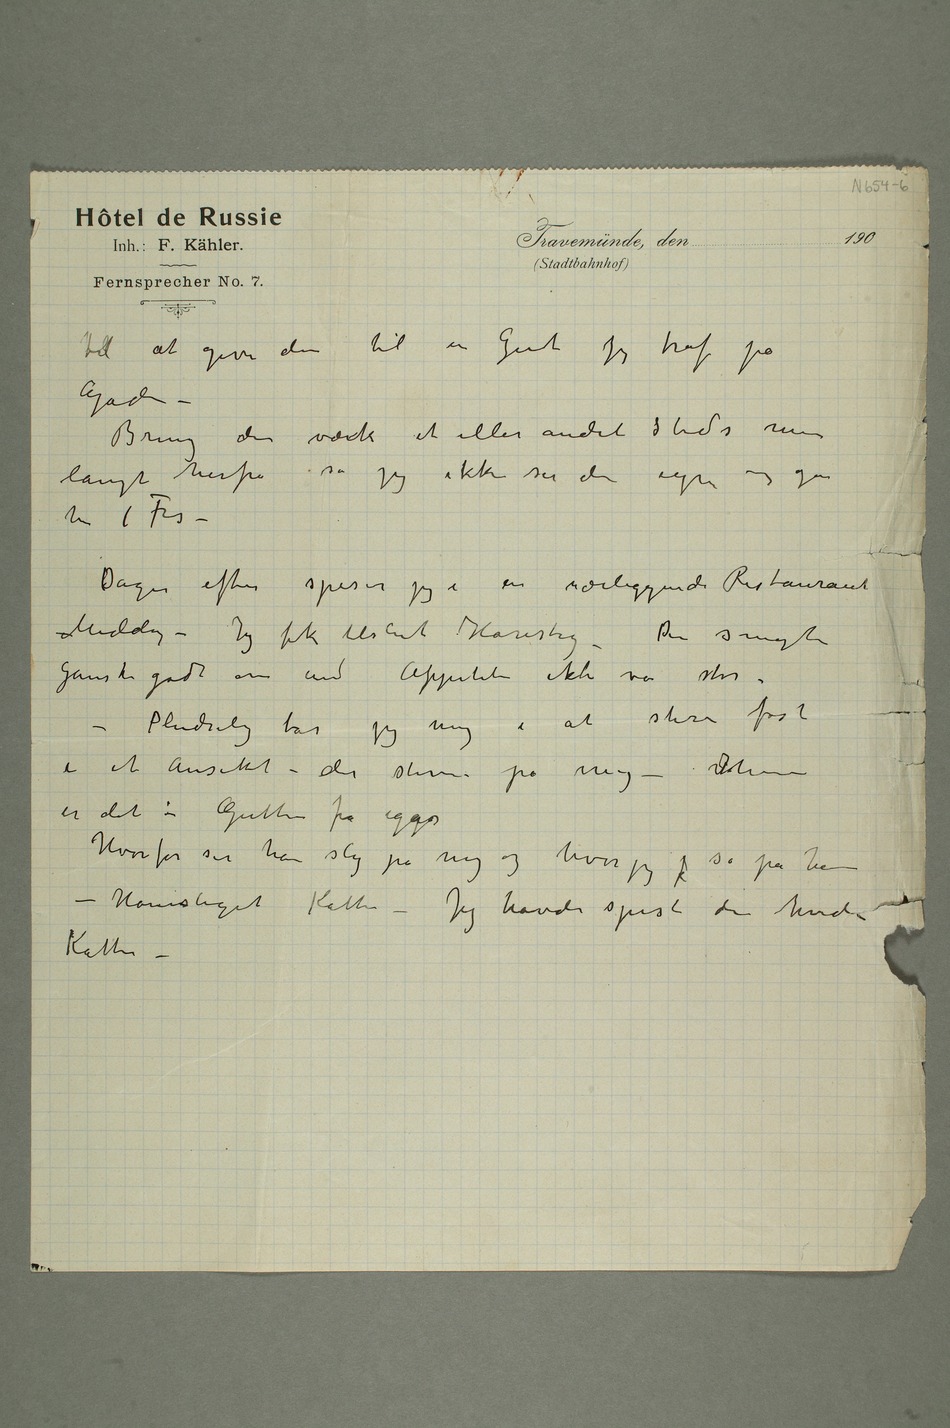 N654-6
Hôtel de Russie
Inh.: F. Kähler.
Fernsprecher No. 7.
Travemünde, den 190
(Stadtbahnhof)
til at give den til en Gut jeg traf på
Gaden –
Bring den væk et eller andet steds men
langt herfra så jeg ikke ser den igjen og gav
ham 1 Frs –
Dagen efter spiser jeg i en nærliggende Restaurant
Middag – Jeg fik tilslut Haresteg – Den smagte
ganske godt om end Appetiten ikke var stor.
– Pludselig tar jeg mig i at stirre fast
i et Ansikt – der stirrer på mig –
er det – Gutten fra igår
Hvorfor ser han slig på mig og hvorfor jeg så på ham
– Haresteget Katten – Jeg havde spist den hvide
Katten –